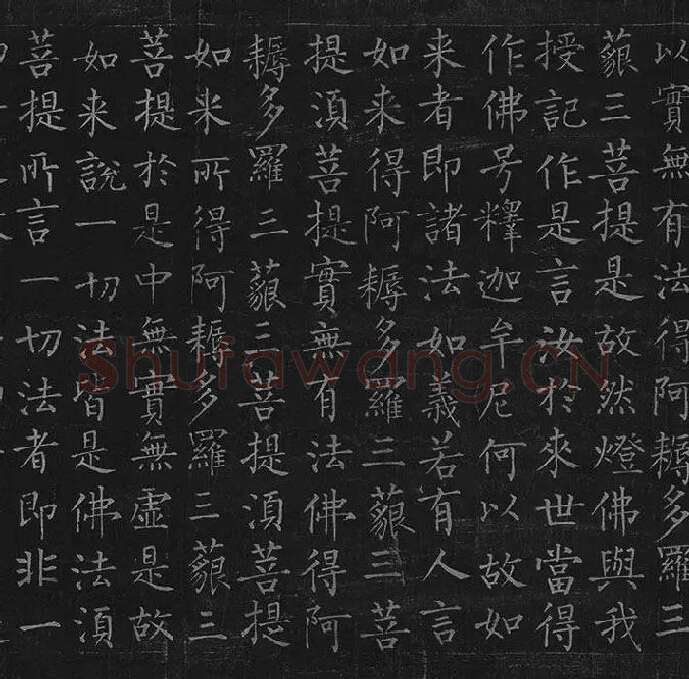 以實無有法得阿耨多羅三
藐三菩提是故然燈佛與我
授記作是言汝於來世當得
作佛号釋迦牟尼何以故如
来者即諸法如義若有人言
如来得阿耨多羅三藐三菩
提湏菩提實無有法佛得阿
耨多羅三藐三菩提湏菩提
如来所得阿耨多羅三藐三
菩提於是中無實無虛是故
如来說一切法皆是佛法湏
菩提所言一切法者即非一
Shufawang.CN